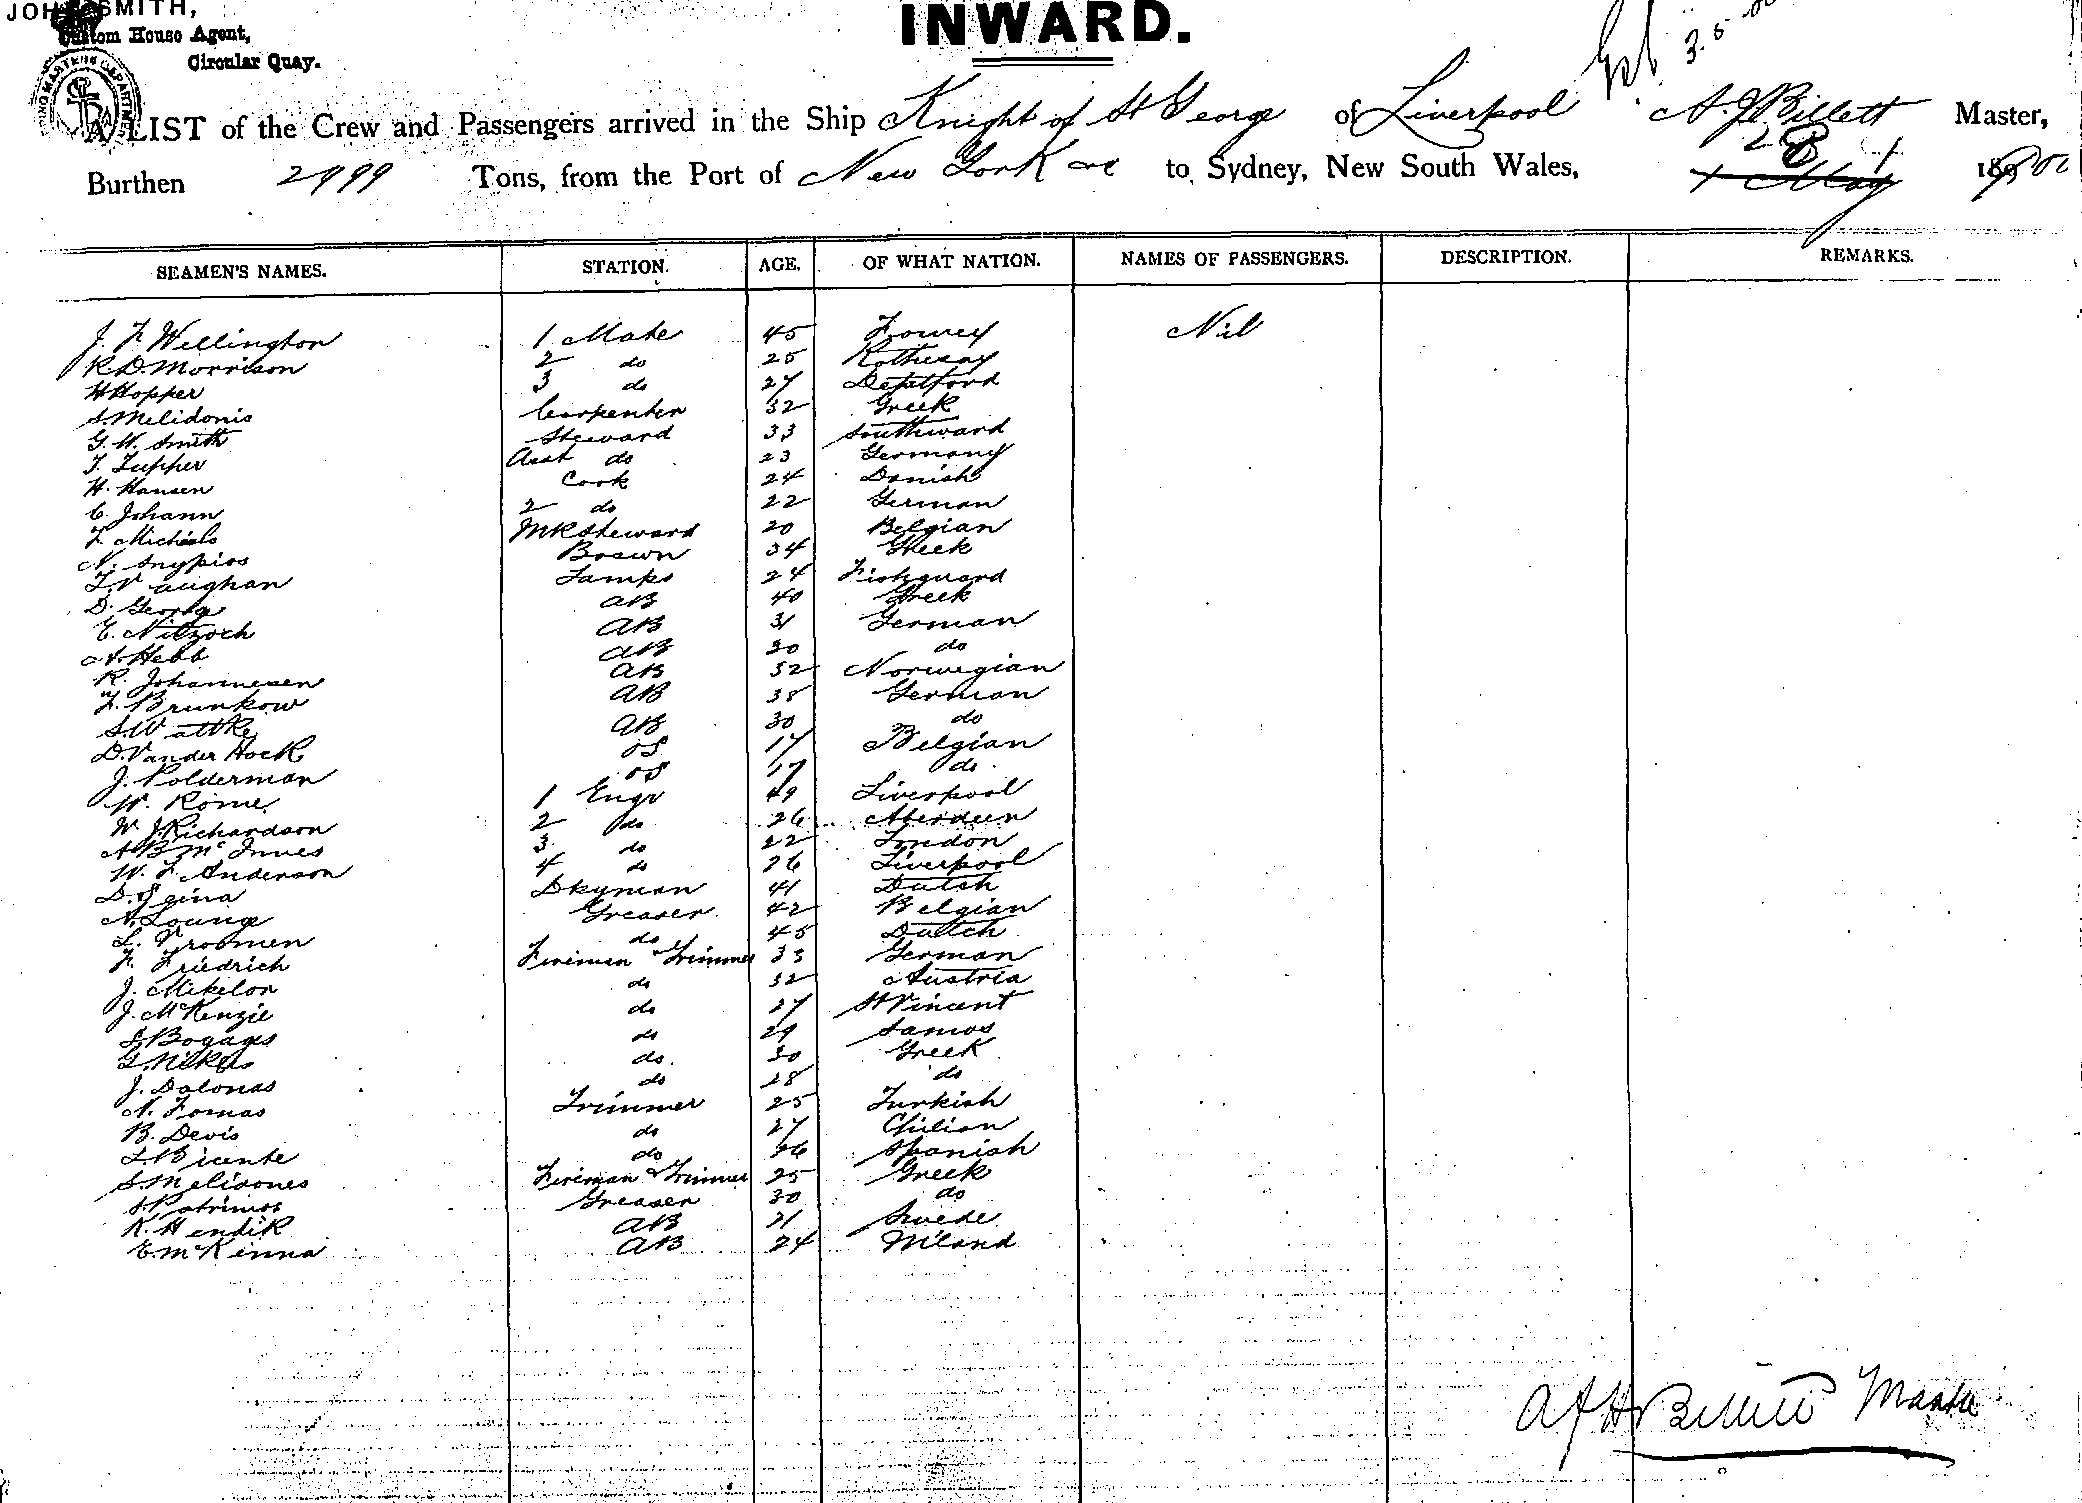 JOHN SMITH,
Custom House Agent,
Circular Quay.
INWARD.
3.5.00
A LIST of the Crew and Passengers arrived in the Ship Knight of St George of Liverpool A. J. Billett Master,
Burthen 2999 Tons, from the Port of New York to Sydney, New South Wales, May
SEAMEN'S NAMES. STATION. AGE. OF WHAT NATION. NAMES OF PASSENGERS. DESCRIPTION. REMARKS.
J. F. Wellington 1 Mate 45 Fowey Nil
R D. Morrison 2 do 25 Rothesay
H Hopper 3 do 27 Deptford
S. Melidonis Carpenter 32 Greek
G. W. Smith Steward 33 Southward
T. Tupper Asst do 23 Germany
H. Hansen Cook 24 Danish
C. Johann 2 do 22 German
F. Michiels MR Steward 20 Belgian
N. Snypios Boswn 34 Greek
T. Vaughan Lamps 24 Fishguard
D. George AB 40 Greek
E. Nitzoch AB 31 German
A. Hebb AB 30 do
R. Johannesen AB 32 Norwegian
F. Brunkow AB 38 German
S. Wattke AB 30 do
D. Vander Hock OS 17 Belgian
J. Polderman OS 17 do
W. Rome 1 Engr 49 Liverpool
W. J. Richardson 2 do 26 Aberdeen
A B McInnes 3 do 22 London
W. F. Anderson 4 do 26 Liverpool
D. Dkyman 41 Dutch
A. Greaser 42 Belgian
L. Vroomen do 45 Dutch
F. Friedrich Fireman & Trimmer 33 German
J. Mikelor do 32 Austria
J. McKenzie do 27 St Vincent
Bogages do 29 Samos
G. do 30 Greek
J. Dalonas do 28 do
N. Fomas Trimmer 25 Turkish
B. Devis do 27 Chilian
Vicente do 26 Spanish
S. Melidones Fireman & Trimmer 25 Greek
S. Patrimos Greaser 30 do
K. Hendik AB 21 Swede
E. McKenna AB 24 Niland
Billett Master